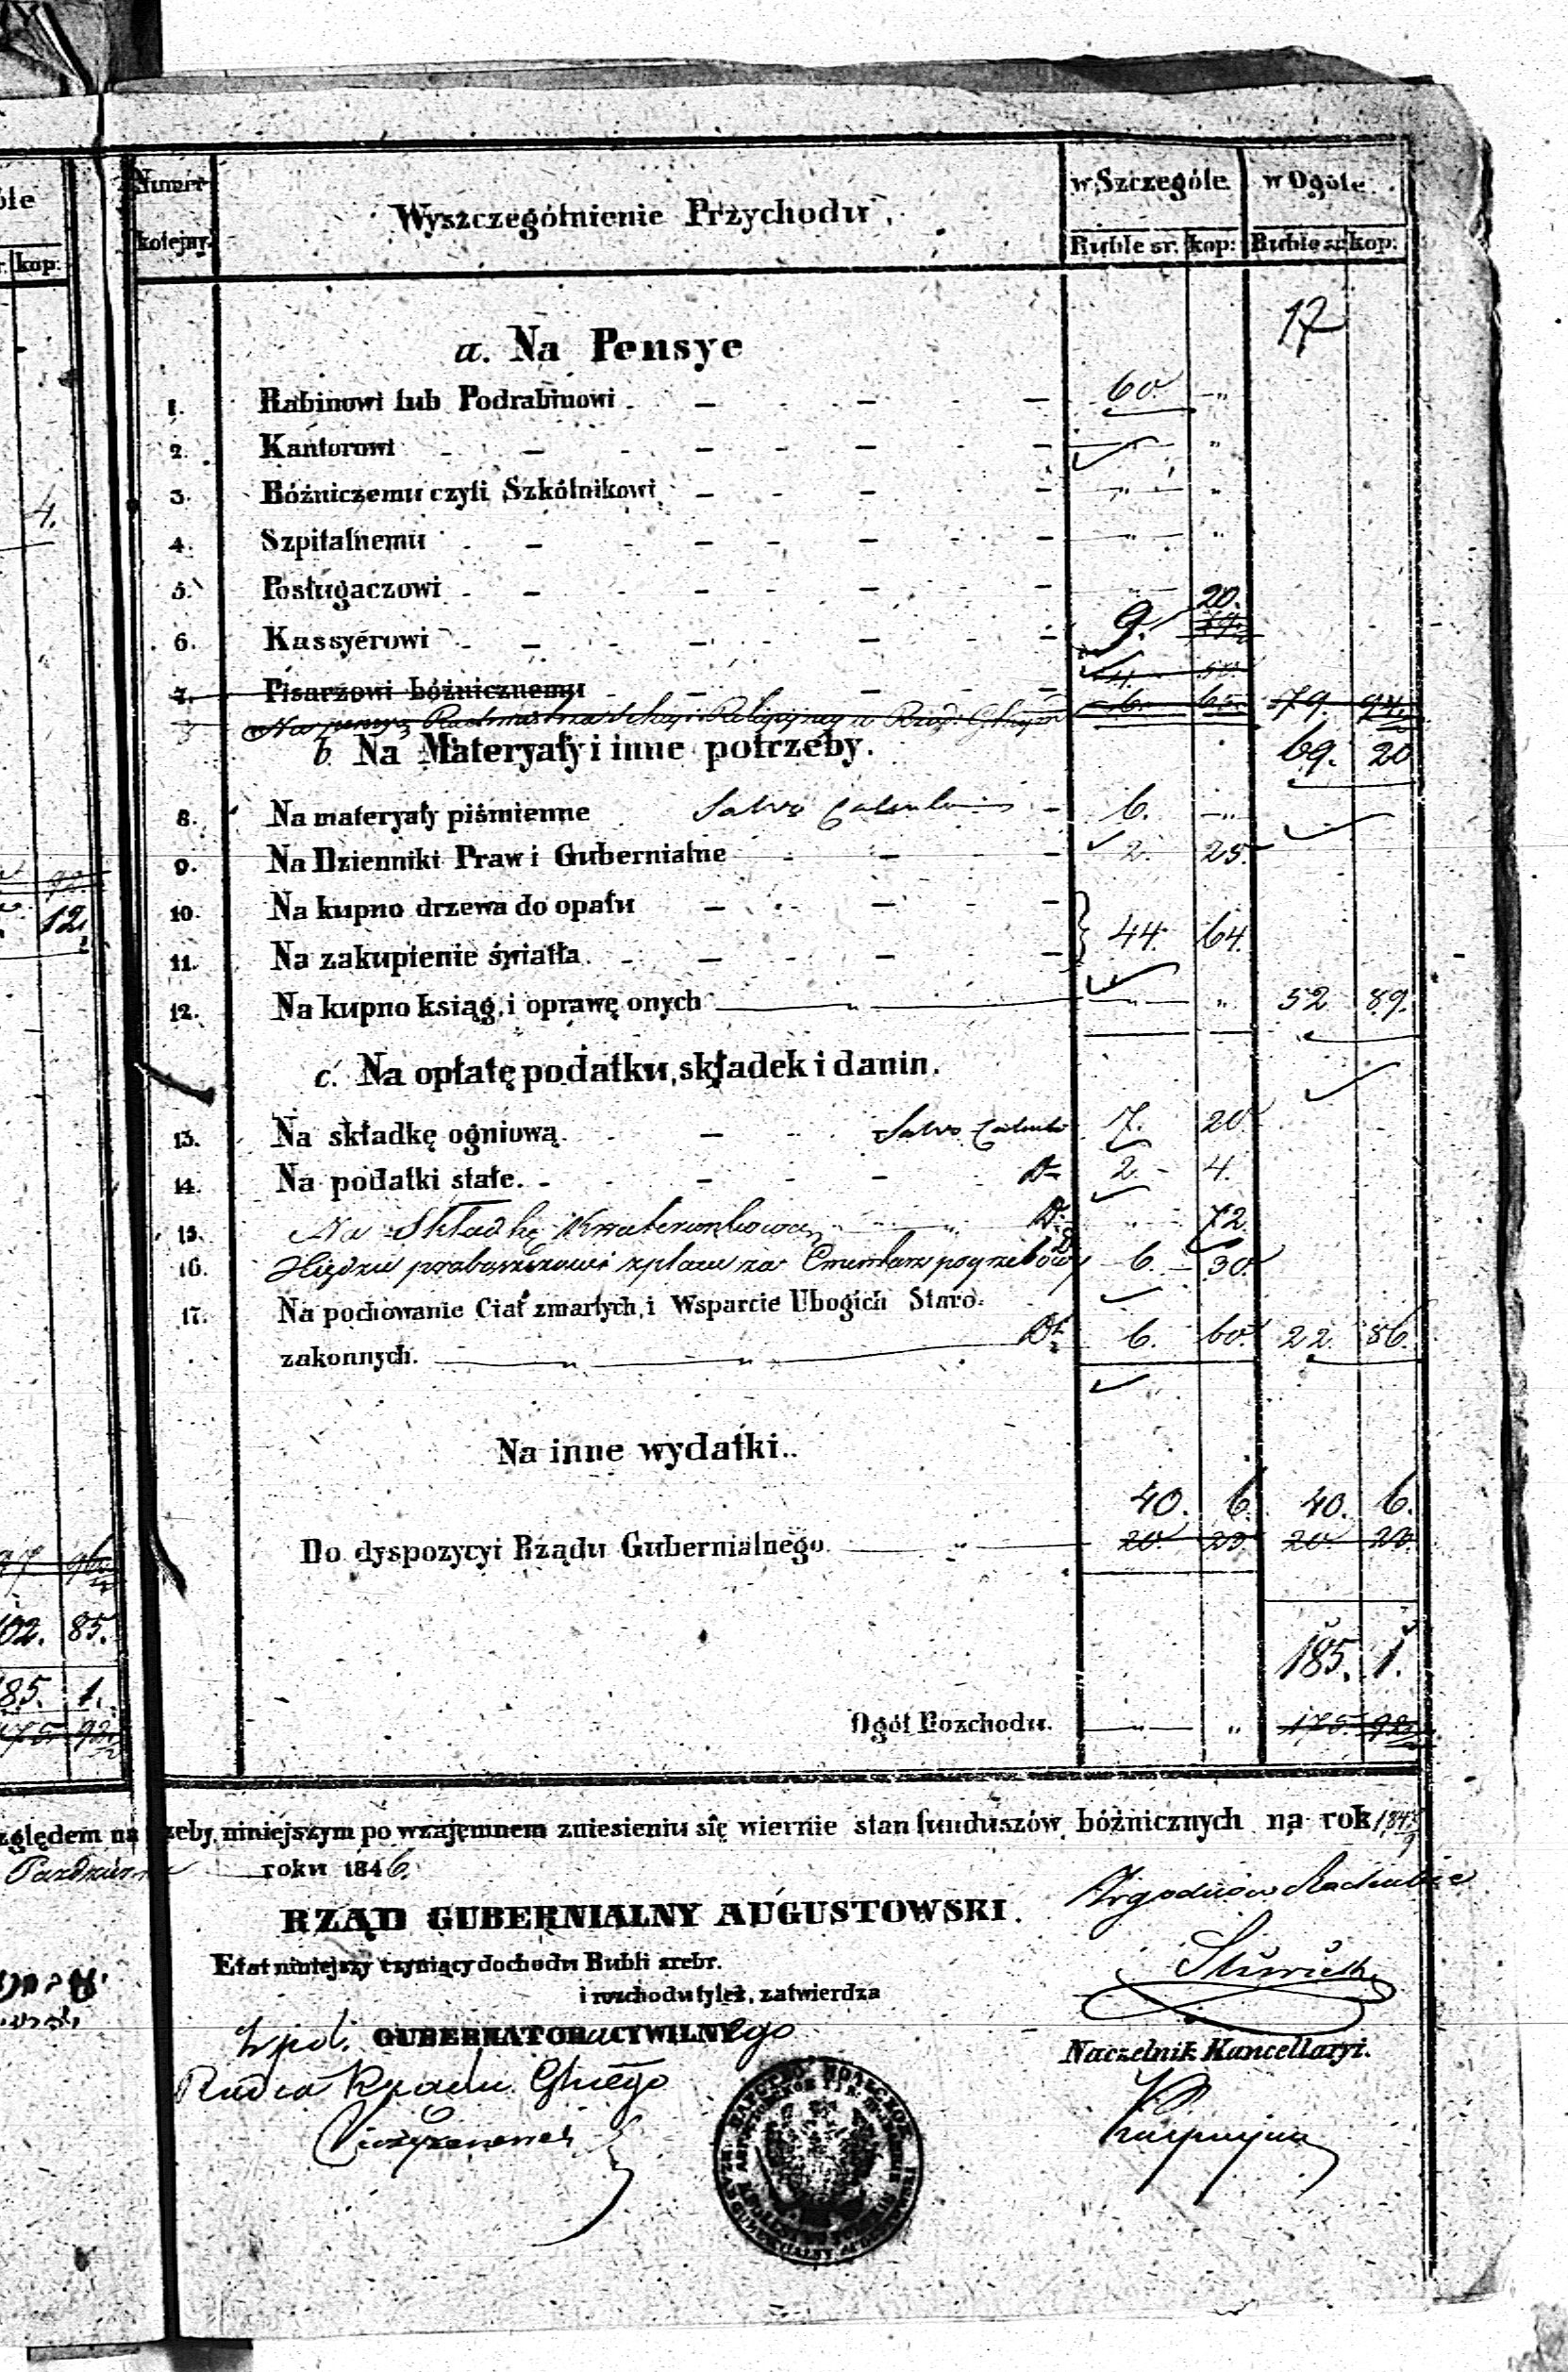 Numer kolejny. Wyszczególnienie Przychodu. w Szczególe. w Ogóle.
Ruble sr. kop: Ruble sr. kop:
17
a. Na Pensye
1. Rabinowi lub Podrabinowi. 60. „
2. Kantorowi „
3. Bóźniczemu czyli Szkólnikowi „ „
4. Szpitalnemu „ „
5. Posługaczowi
6. Kassyerowi 9. 20.
7. Pisarzowi bóźnicznemu 4. 50.
6. 65. 79. 94
b Na Materyały i inne potrzeby. 69. 20
8. Na materyały piśmienne Salvo Calculo 6. „
9. Na Dzienniki Praw i Gubernialne 2. 25
10. Na kupno drzewa do opału
11. Na zakupienie światła. 44. 64.
12. Na kupno ksiąg, i oprawę onych „ „ „ 52 89.
c. Na opłatę podatku, składek i danin.
13. Na składkę ogniową. Salvo Calculo 7. 20
14. Na podatki stałe. Dto 2 4.
15. Na Składkę Kwaterunkową „ Dto „ 72
16. 6. 30.
17. Na pochowanie Ciał zmarłych, i Wsparcie Ubogich Staro-
zakonnych. „ „ Dto 6. 60. 22. 86.
Na inne wydatki..
40. 6. 40. 6.
Do dyspozycyi Rządu Gubernialnego. „ 20 20 20 20.
185. 1.
Ogół Rozchodu. „ „ 175. 92
4.
92.
12.
96
102. 85.
185. 1.
175. 92
względem na niniejszym po wzajemnem zniesieniu się wiernie stan funduszów bóźnicznych na rok 184
roku 1846.
RZĄD GUBERNIALNY AUGUSTOWSKI.
Etat niniejszy czyniący dochodu Rubli srebr.
i rozchodu tyleż, zatwierdza
GUBERNATORA CYWILNEGO
Radca Rządu
Naczelnik Kancellaryi.